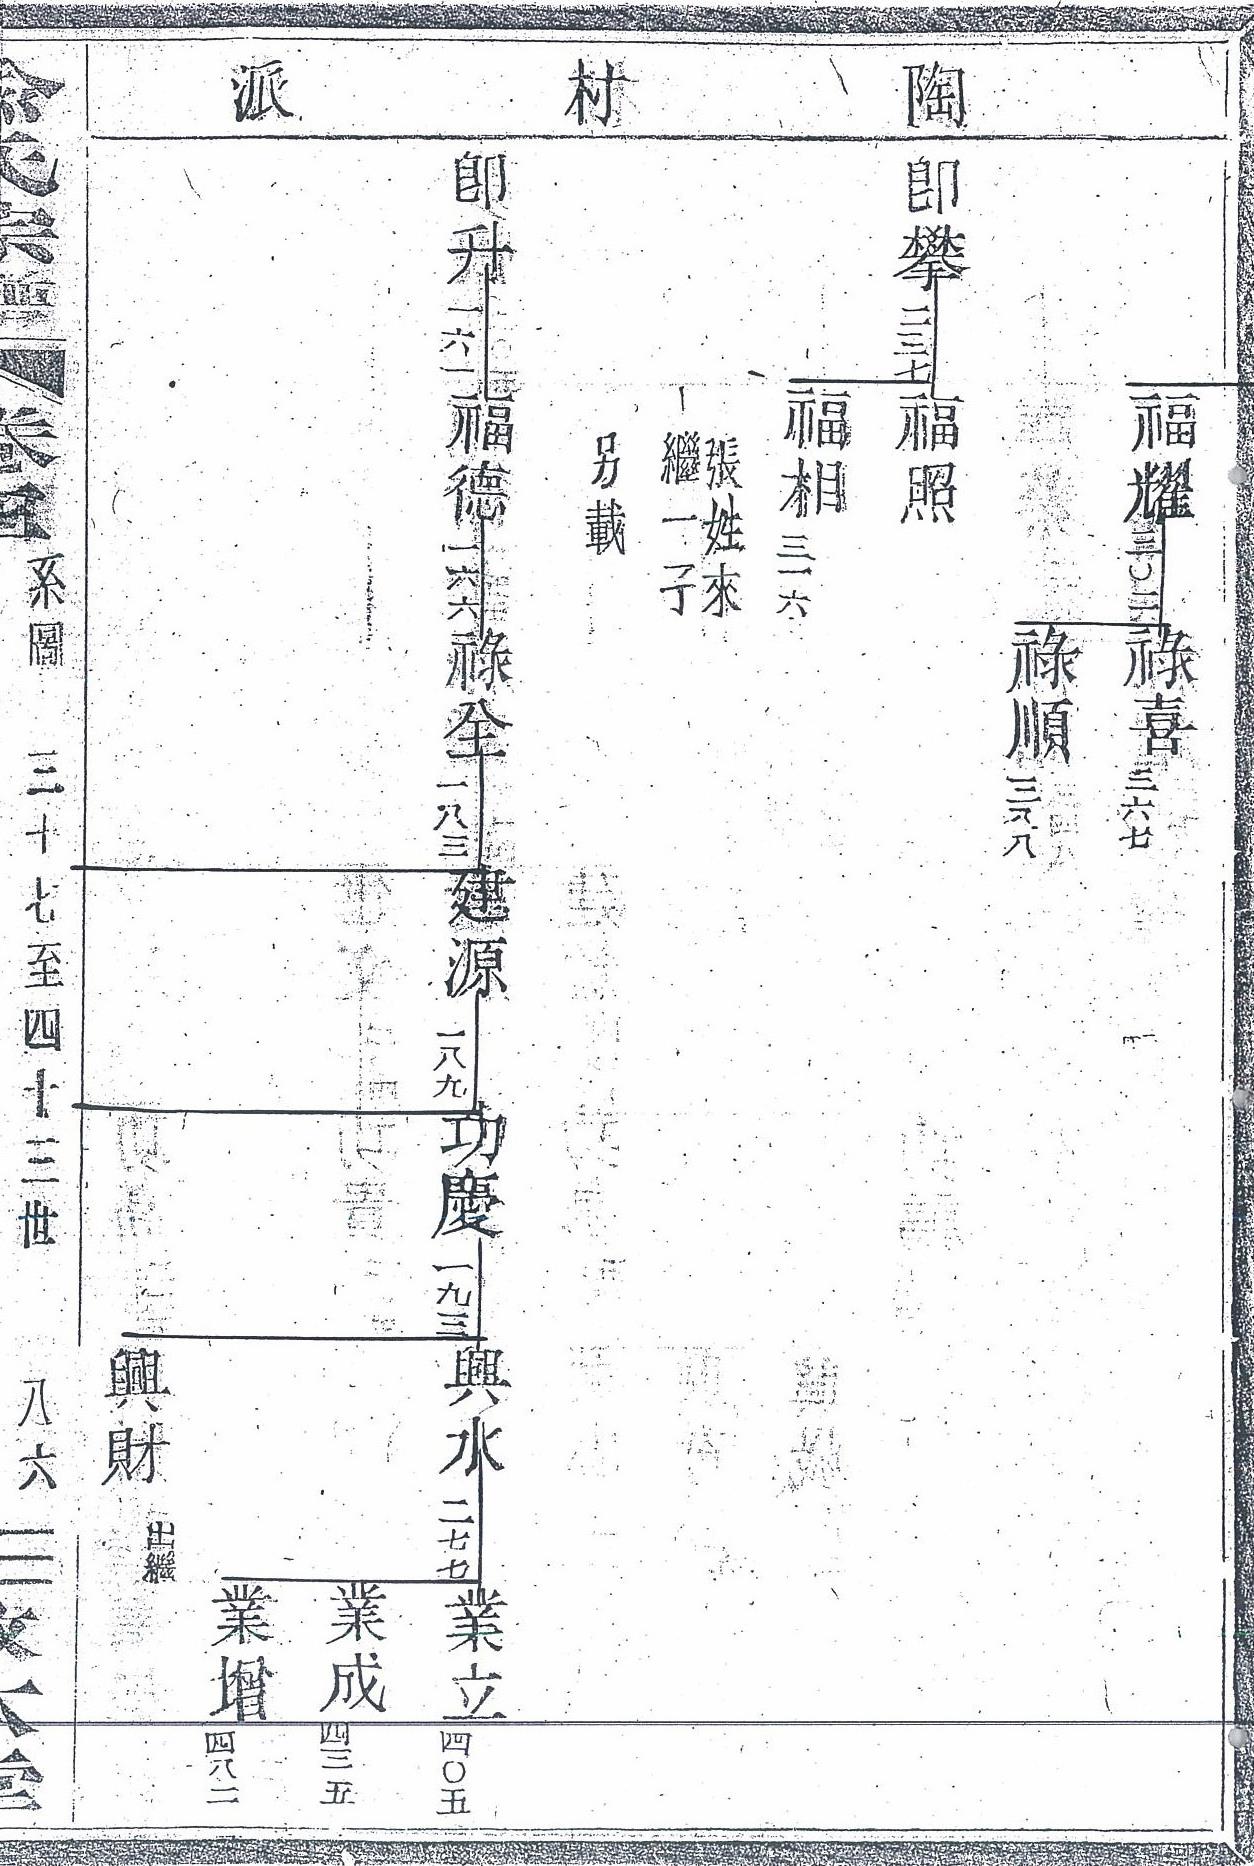 陶村派
福耀 三〇二
祿喜 三六七
祿順 三八八
即攀 二三七
福照
福相 三一六
張姓來
繼一子
另載
即升 一六一
福德 一六六
祿全 一八三
建源 一八九
功慶 一九三
興水 二七七
業立 四〇五
業成 四三五
業增 四八二
興財 出繼
卷
系圖 三十七至四十三世 八六